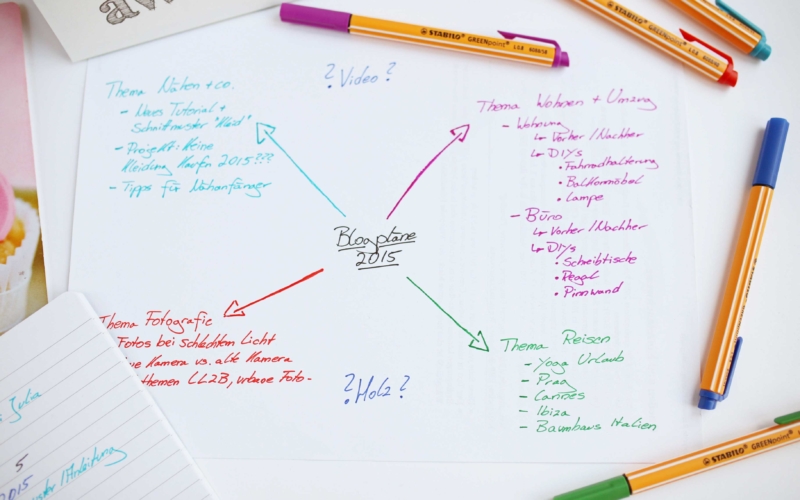 aw
STABILO GREENpoint
STABILO GREENpoint
?Video?
Thema Nähen + co.
- Neues Tutorial +
Schnittmuster "Kleid"
- Projekt: Keine
Kleidung kaufen 2015???
- Tipps für Nähanfänger
Thema Wohnen + Umzug
- Wohnung
↳ Vorher/Nachher
↳ DIYs
• Fahrradhalterung
• Balkonmöbel
• Lampe
- Büro
↳ Vorher/Nachher
↳ DIYs
• Schreibtische
• Regal
• Pinnwand
Blogpläne
2015
Thema Fotografie
Fotos bei schlechtem Licht
Kamera vs. alte Kamera
themen LL2B, unsere Foto-
?Holz?
Thema Reisen
- Yoga Urlaub
- Prag
- Cannes
- Ibiza
- Baumhaus Italien
Julia
5
2015
/Anleitung
STABILO GREENpoint